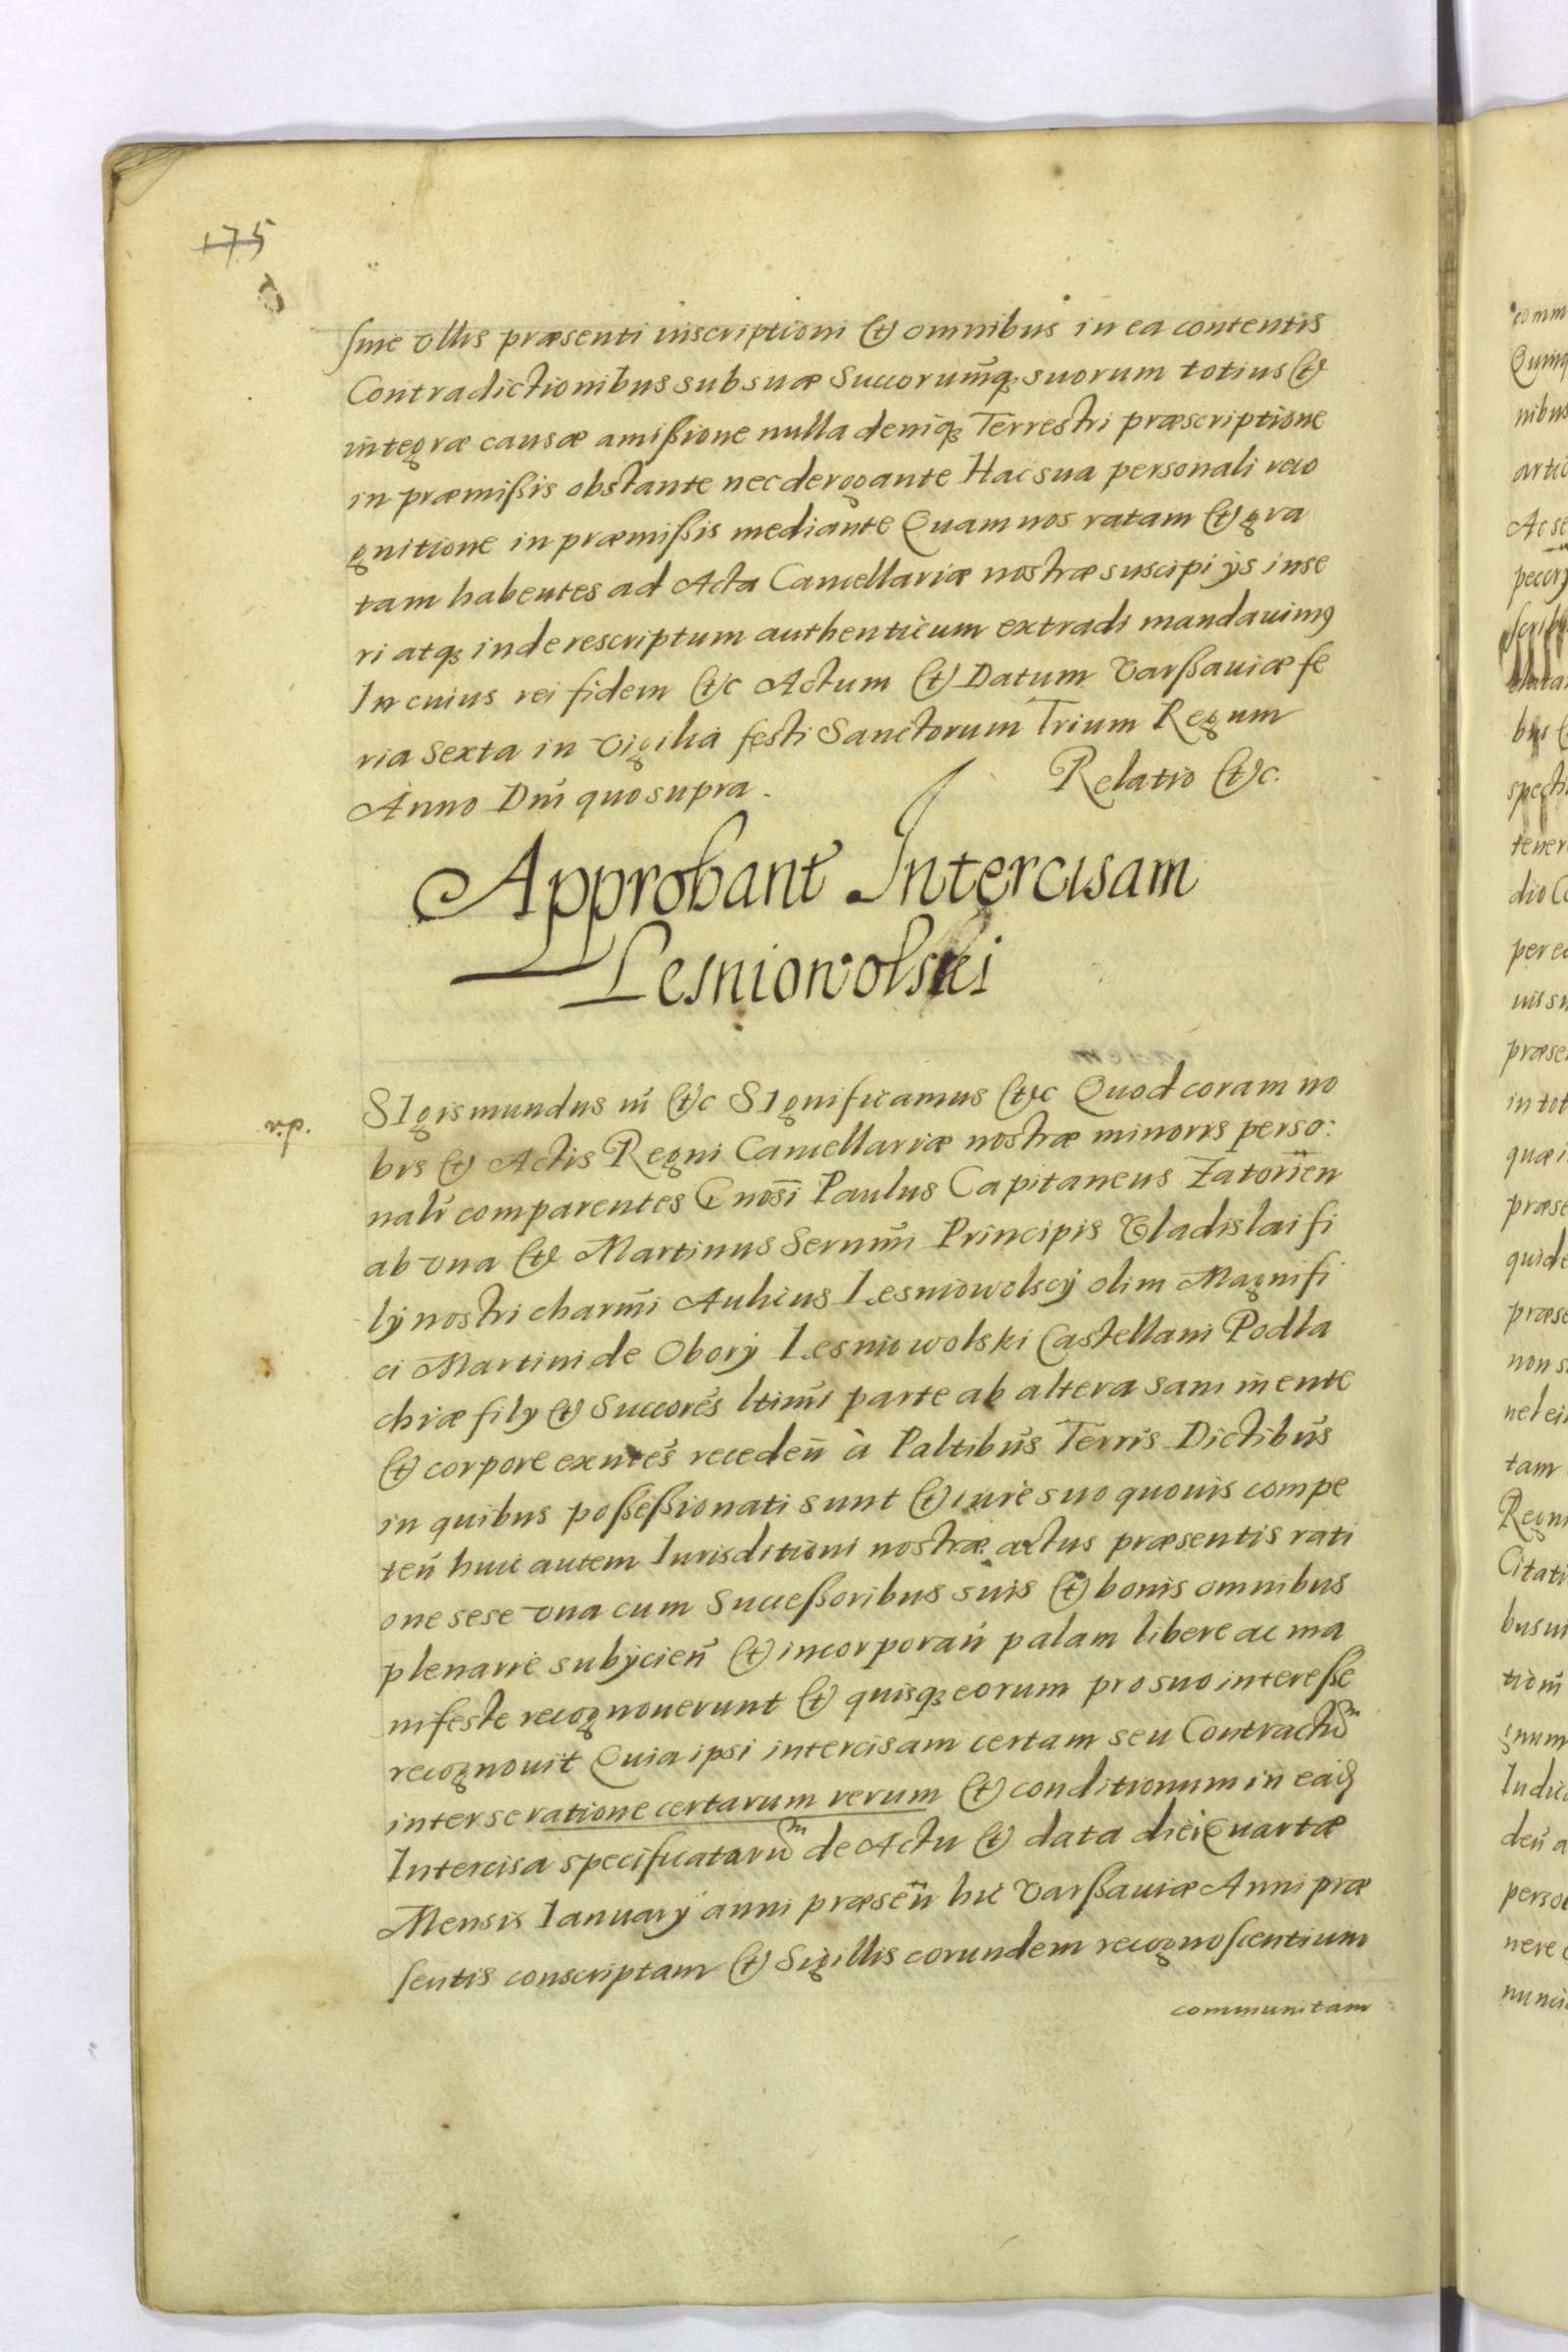 175
sine ullis præsenti inscriptioni & omnibus in ea contentis
Contradictionibus sub suæ Succorum̃q; suorum totius &
integræ causæ amißione nulla deniq; Terrestri præscriptione
in præmißis obstante nec derogante Hac sua personali reco
gnitione in præmißis mediante Quam nos ratam & gra
tam habentes ad Acta Cancellariæ nostræ suscipi ijs inse
ri atq; inde rescriptum authenticum extradi mandauimus
In cuius rei fidem &c Actum & Datum Varßauiæ fe
ria sexta in vigilia festi Sanctorum Trium Regum
Anno Dni quo supra. Relatio &c.
Approbant Intercisam
Lesniowolski
SIgismundus iii &c SIgnificamus &c Quod coram no
bis & Actis Regni Cancellariæ nostræ minoris perso:
nalr comparentes Gnosi Paulus Capitaneus Zatorien
ab vna & Martinus Sernmi Principis Vladislai fi
lij nostri charmi Aulicus Lesniowolscij olim Magnifi
ci Martini de Obory Lesniowolski Castellani Podla
chiæ filij & Succores ltimi parte ab altera sani mente
& corpore exntes receden à Paltibus Terris Dictibus
in quibus poßeßionati sunt & iure suo quouis compe
ten huic autem Iurisditioni nostræ actus præsentis rati
one sese vna cum Succeßoribus suis & bonis omnibus
plenarie subijcien & incorporan palam libere ac ma
nifeste recognouerunt & quisq; eorum pro suo intereße
recognouit Quia ipsi intercisam certam seu Contractum
inter se ratione certarum rerum & conditionum in eadem
Intercisa specificatarum de Actu & data diei Quartæ
Mensis Ianuarij anni præsen hic Varßauiæ Anni præ
sentis conscriptam & Sigillis eorundem recognoscentium
communitam